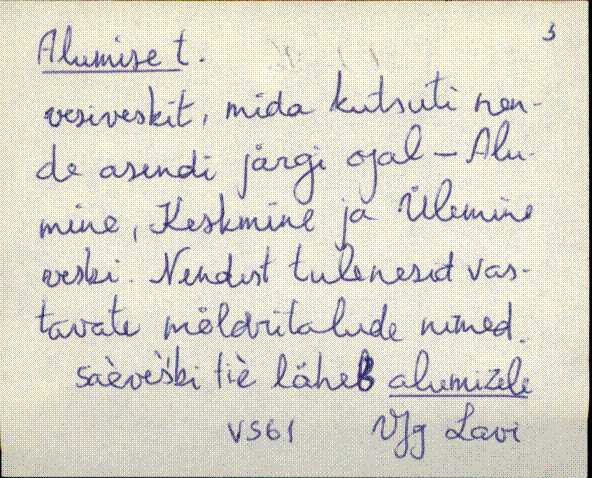 3
Alumise t.
vesiveskit, mida kutsuti nen-
de asendi järgi ojal – Alu-
mine, Keskmine ja Ülemine
veski. Nendest tulenesid vas-
tavate möldritalude nimed.
saèvèški tiè läheB alumizele
VS61 Vjg Lavi